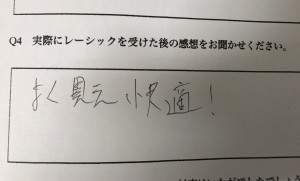 Q4 実際にレーシックを受けた後の感想をお聞かせください。
よく見え 快適!